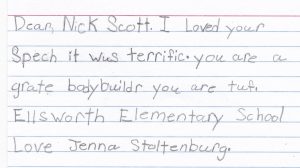 Dear, Nick Scott. I Loved your
Spech it wus terrific. you are a
grate bodybuildr you are tuf.
Ellsworth Elementary School
Love Jenna Stoltenburg.